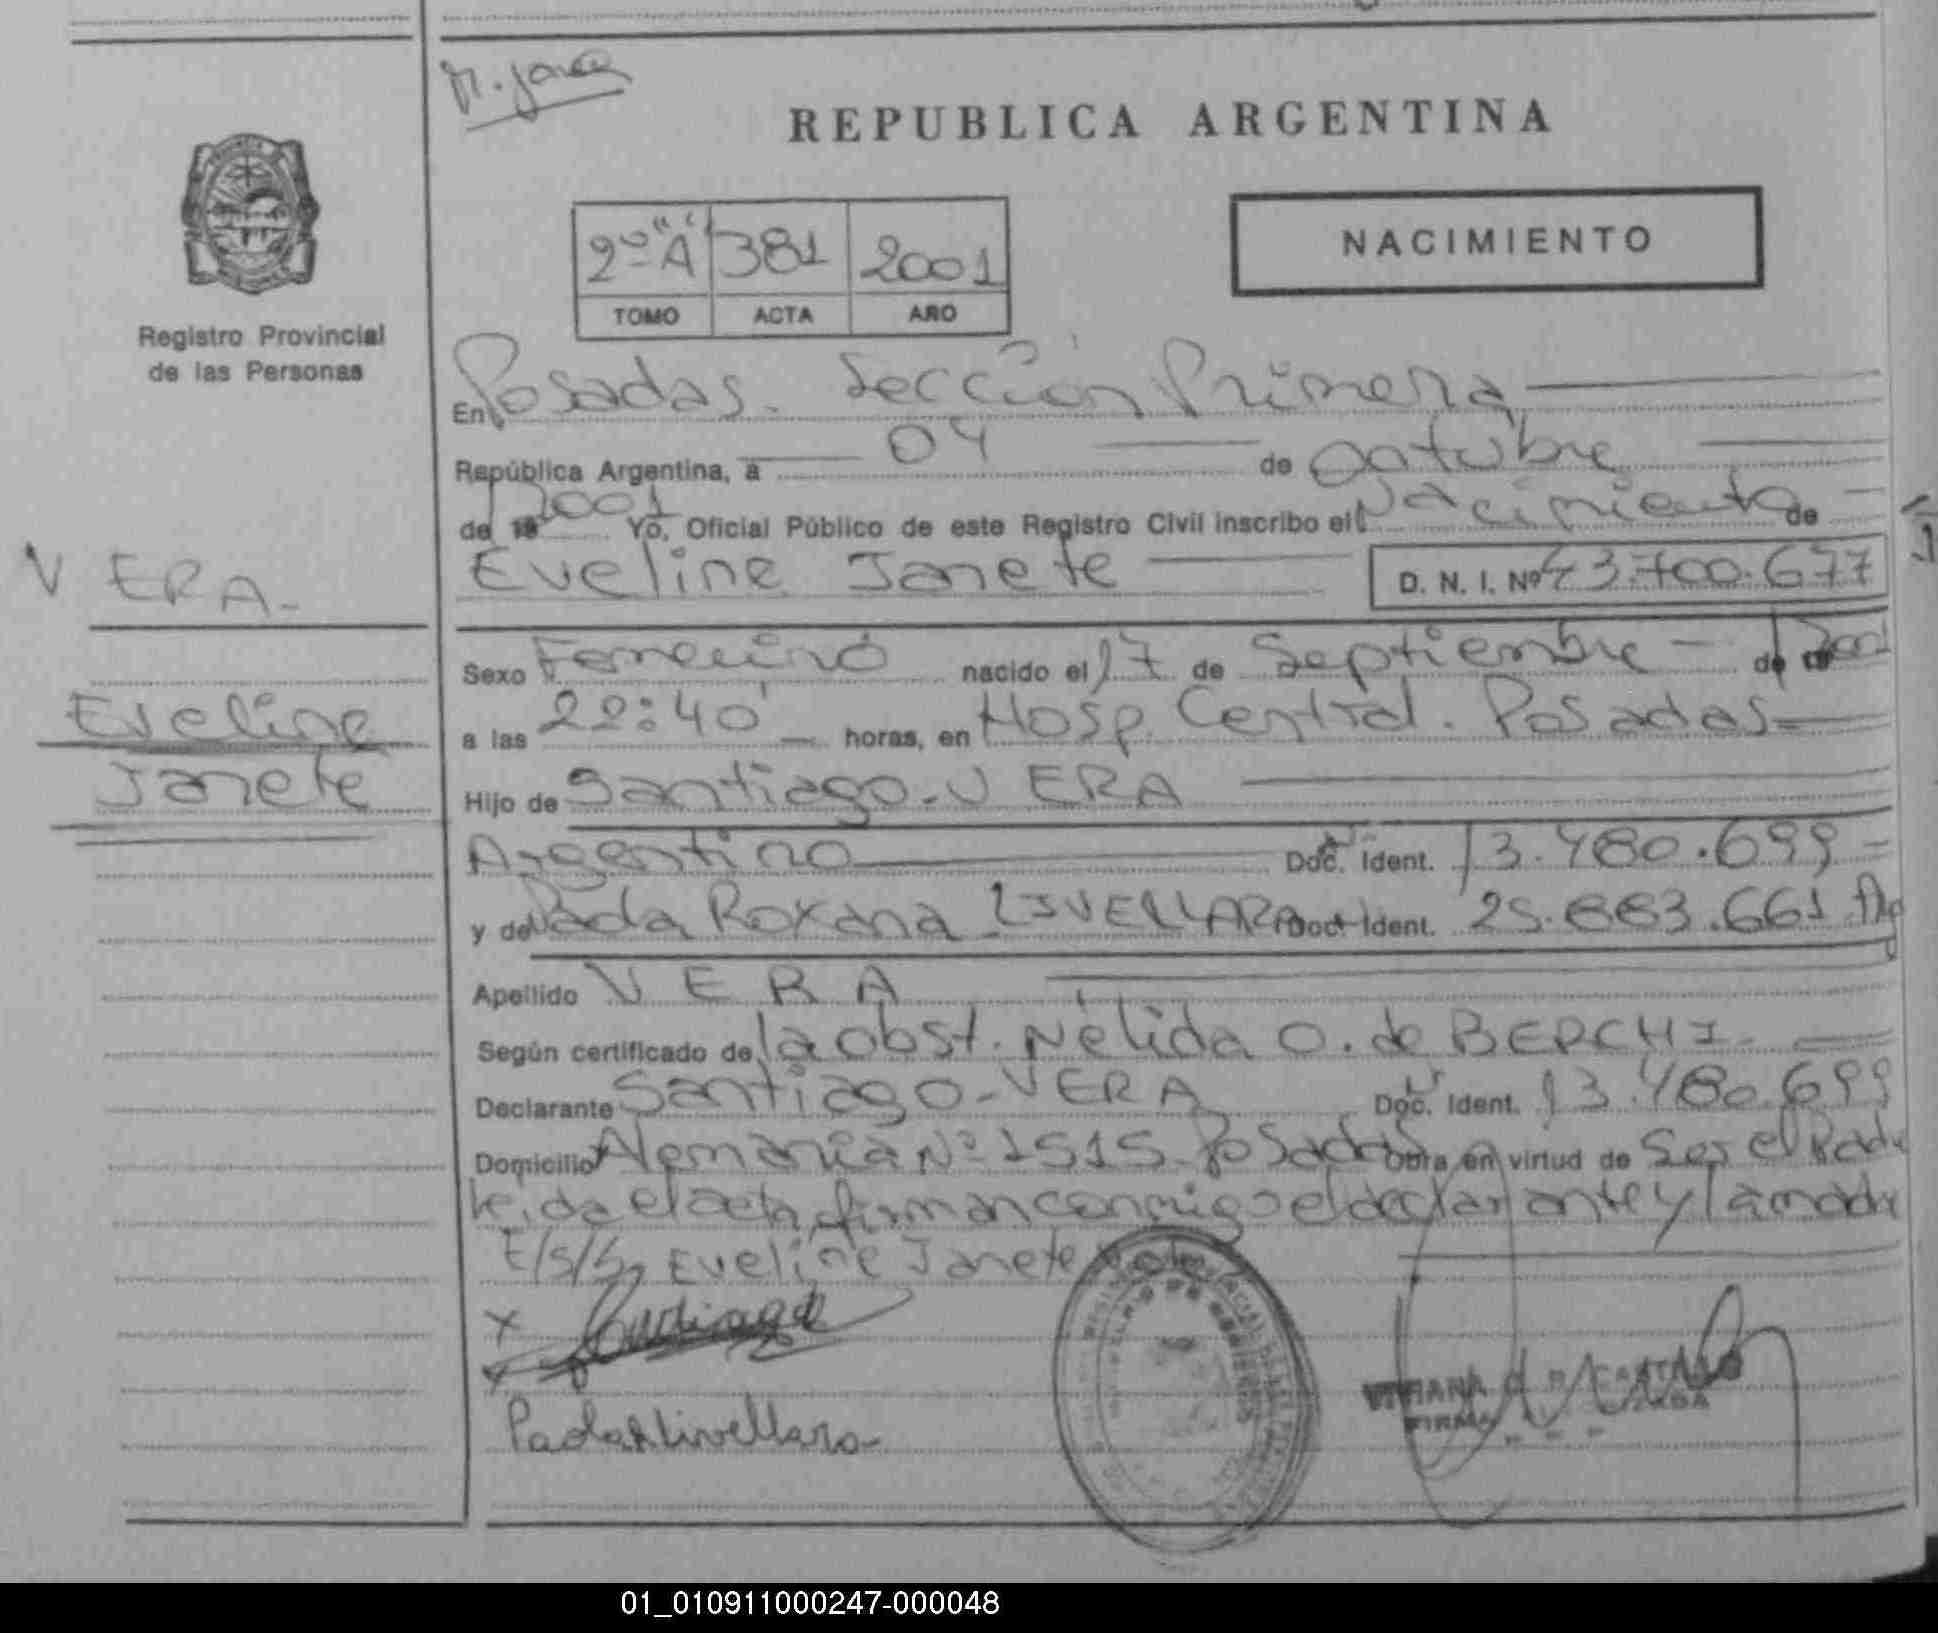 REPUBLICA ARGENTINA
2º "A" 381 2001
TOMO ACTA AÑO
NACIMIENTO
Registro Provincial
de las Personas
VERA-
Eveline
Janete
En Posadas. Sección Primera
República Argentina, a 04 de octubre
de 19 2001 Yo, Oficial Público de este Registro Civil inscribo el Nacimiento de
Eveline Janete D. N. I. Nº 43.700.677
Sexo Femenino nacido el 17 de Septiembre - de 19 2001
a las 22:40 horas, en Hosp. Central. Posadas
Hijo de Santiago - VERA
Argentino Doc. Ident. 13.480.699
y de Paola Roxana LIVELLARA Doc. Ident. 25.883.661 Arg
Apellido VERA
Según certificado de la obst. Nélida O. de BERCHI
Declarante Santiago - VERA Doc. Ident. 13.480.699
Domicilio Alemania Nº 1515 Posadas Obra en virtud de Ser el Padre
leída el acta, firman conmigo el declarante y la madre
E/S/S Eveline Janete Vale
x Santiago
x
Paola R Livellara
01_010911000247-000048